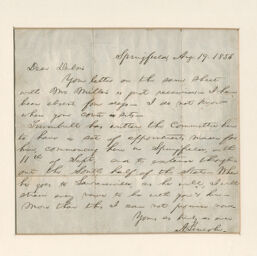 Springfield, Aug 19. 1856
Dear Dubois
Your letter on the same sheet
with Mr Miller's is just received. I have
been absent four days. I do not know
when your court sits.
Trumbull has written the Committee here
to have a set of appointments made for
him commencing here in Springfield, on the
11th of Sept. and to extend through
out the South half of the State. When
he goes to Lawrenceville, as he will, I will
strain every nerve to be with you & him
More than this I can not promise now
Yours as truly as ever
A. Lincoln